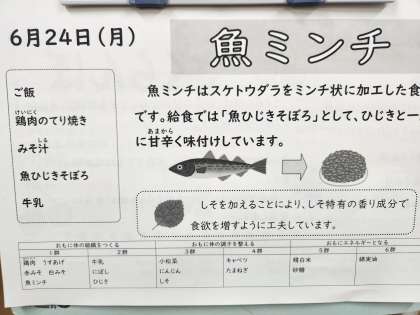 6月24日(月)
魚ミンチ
ご飯
けいにく
鶏肉のてり焼き
しる
みそ汁
魚ひじきそぼろ
牛乳
魚ミンチはスケトウダラをミンチ状に加工した食
です。給食では「魚ひじきそぼろ」として、ひじきと一
あまから
に甘辛く味付けしています。
しそを加えることにより、しそ特有の香り成分で
食欲を増すように工夫しています。
おもに体の組織をつくる おもに体の調子を整える おもにエネルギーとなる
1群 2群 3群 4群 5群 6群
鶏肉 うすあげ 牛乳 小松菜 キャベツ 精白米 綿実油
赤みそ 白みそ にぼし にんじん たまねぎ 砂糖
魚ミンチ ひじき しそ